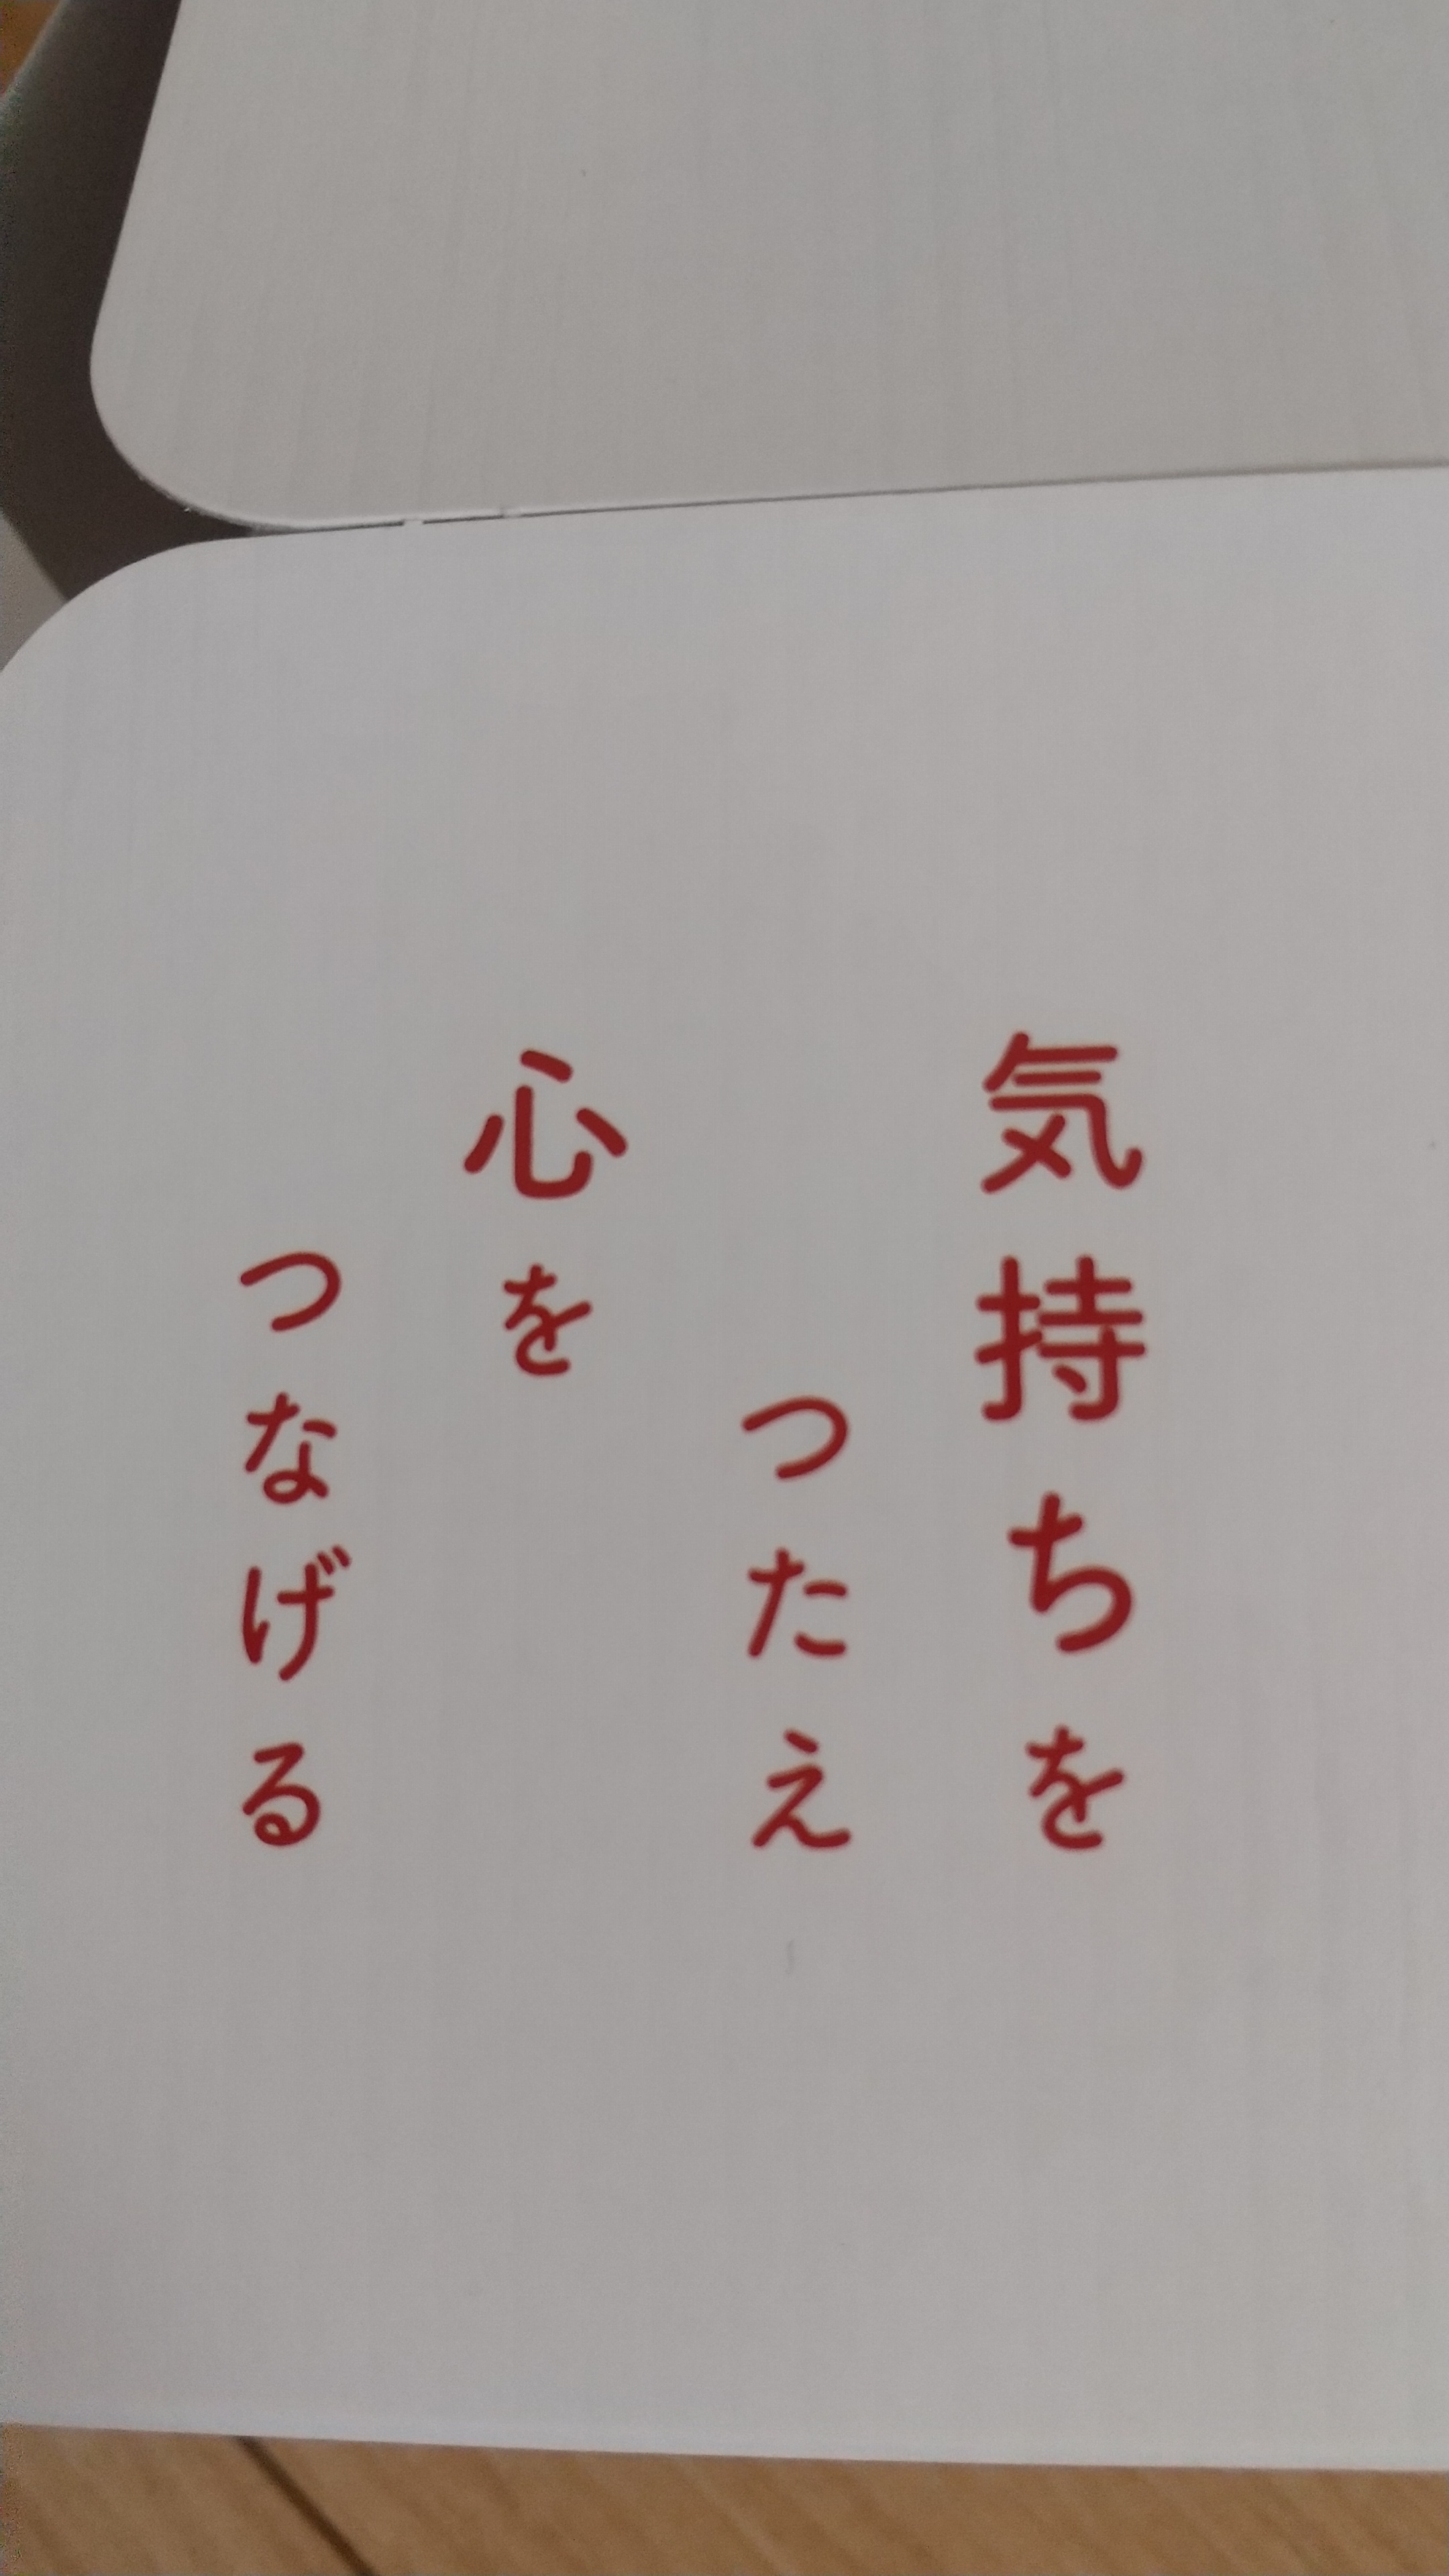 気持ちを
つたえ
心を
つなげる